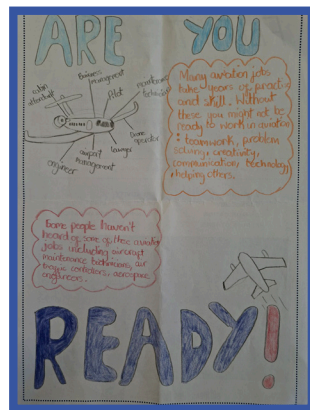 ARE YOU
Business
management
cabin
attendant
Pilot
maintenance
technician
Drone
operator
lawyer
airport
management
engineer
Many aviation jobs
take years of practice
and skill. Without
these you might not be
ready to work in aviation
: teamwork, problem
solving, creativity,
communication, technology
, helping others.
Some people haven't
heard of some of these aviation
jobs including aircraft
maintenance technicians, air
traffic controllers, aerospace
engineers.
READY!